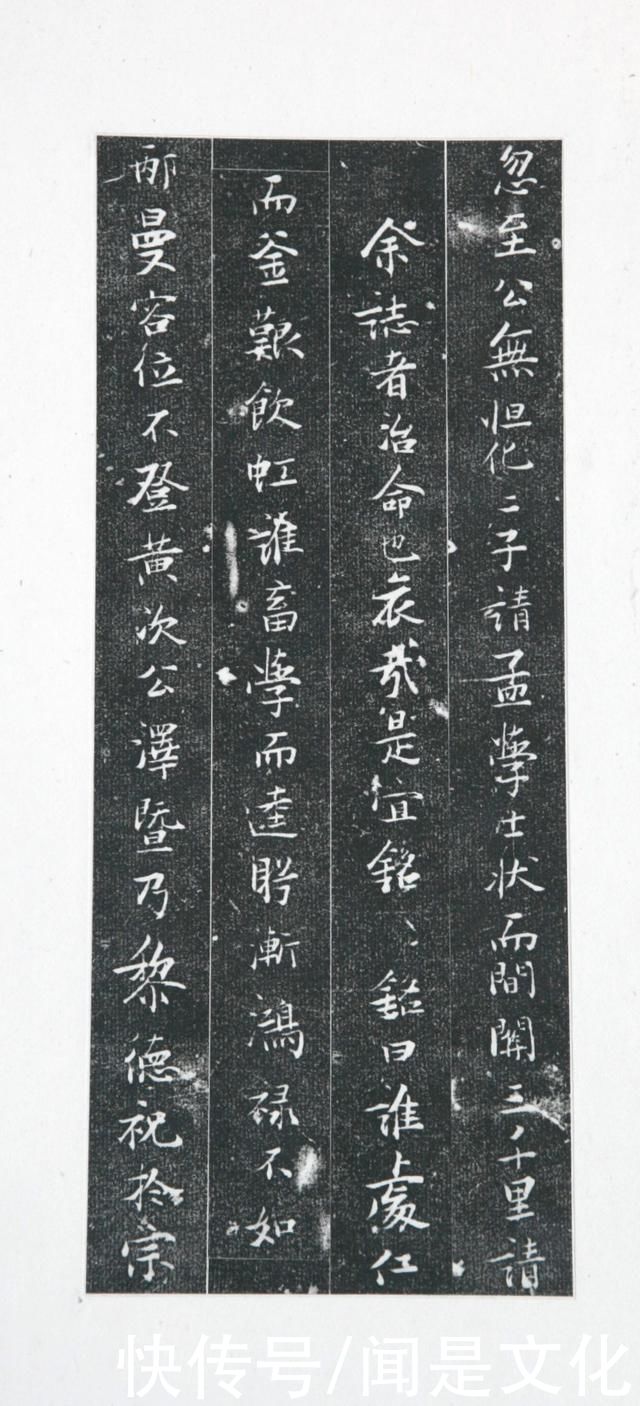 忽至公無怛化二子請孟學士狀而間關三千里請
余誌者治命也哀哉是宜銘〻銘曰誰處仁
而釜艱飲虹誰畜學而逵眄漸鴻祿不如
邴曼容位不登黃次公澤暨乃黎德祝於宗
快传号/闻是文化